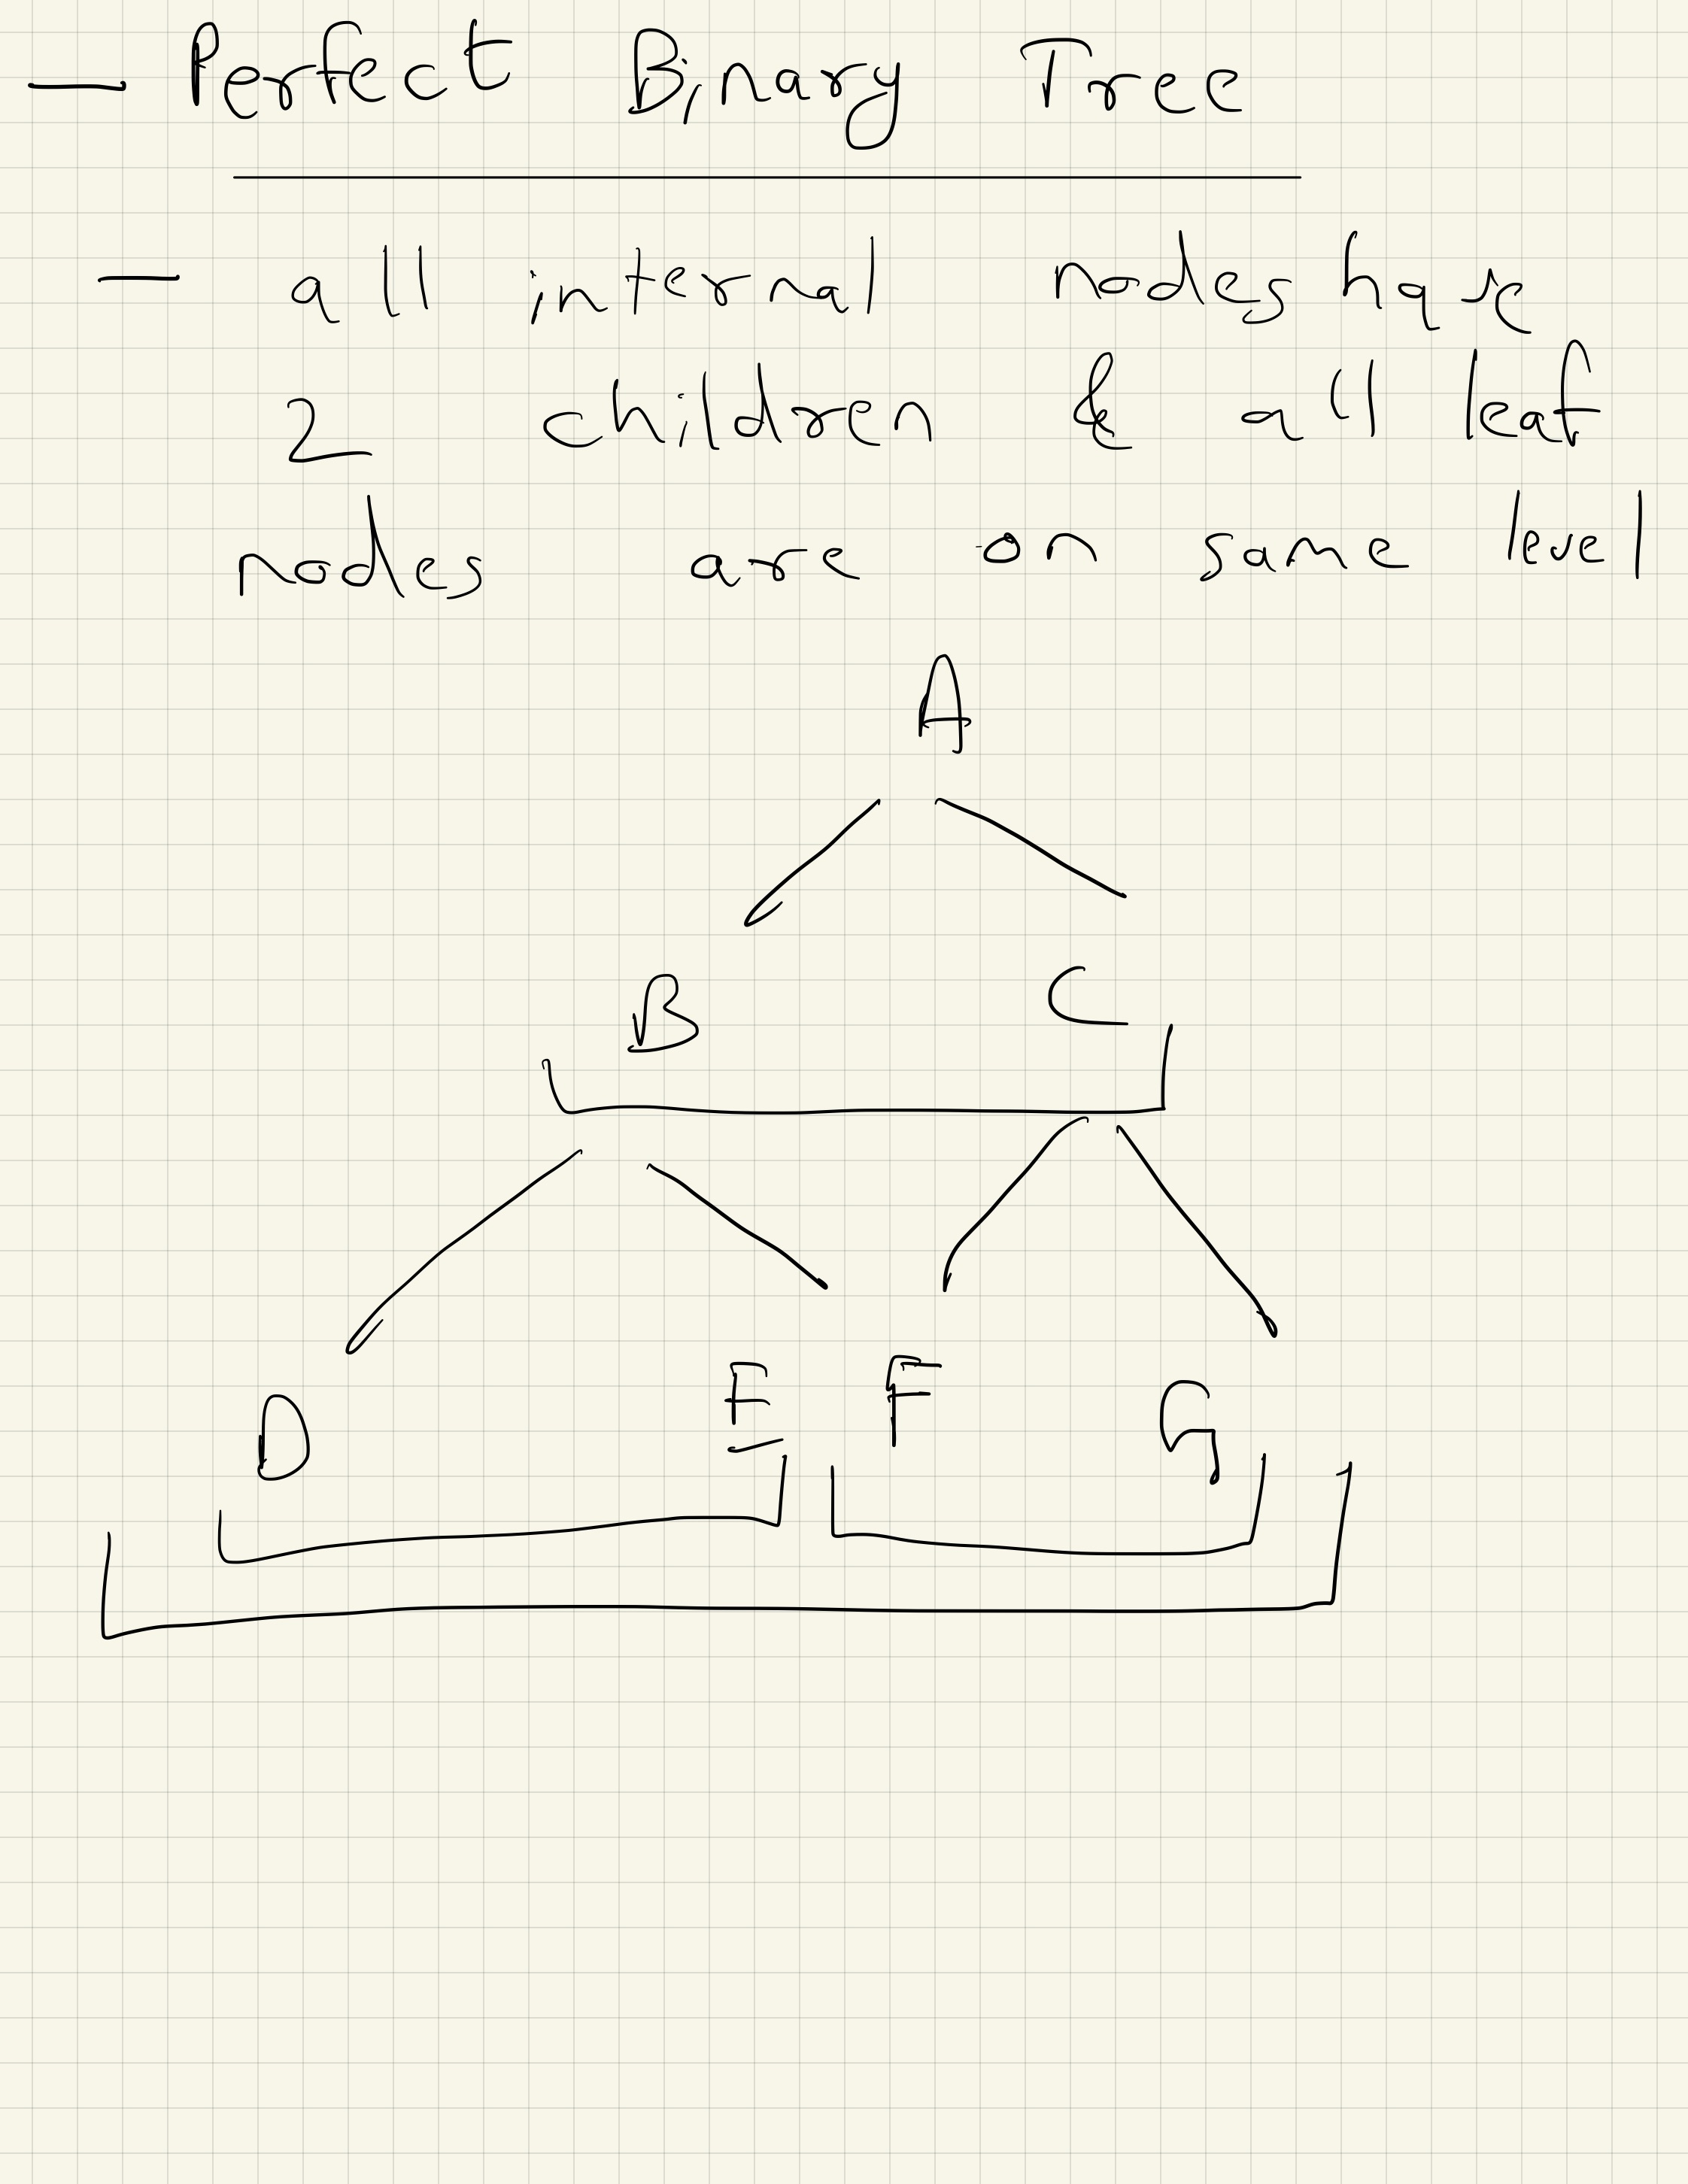 — Perfect Binary Tree
— all internal nodes have
2 children & all leaf
nodes are on same level
A
B C
D E F G